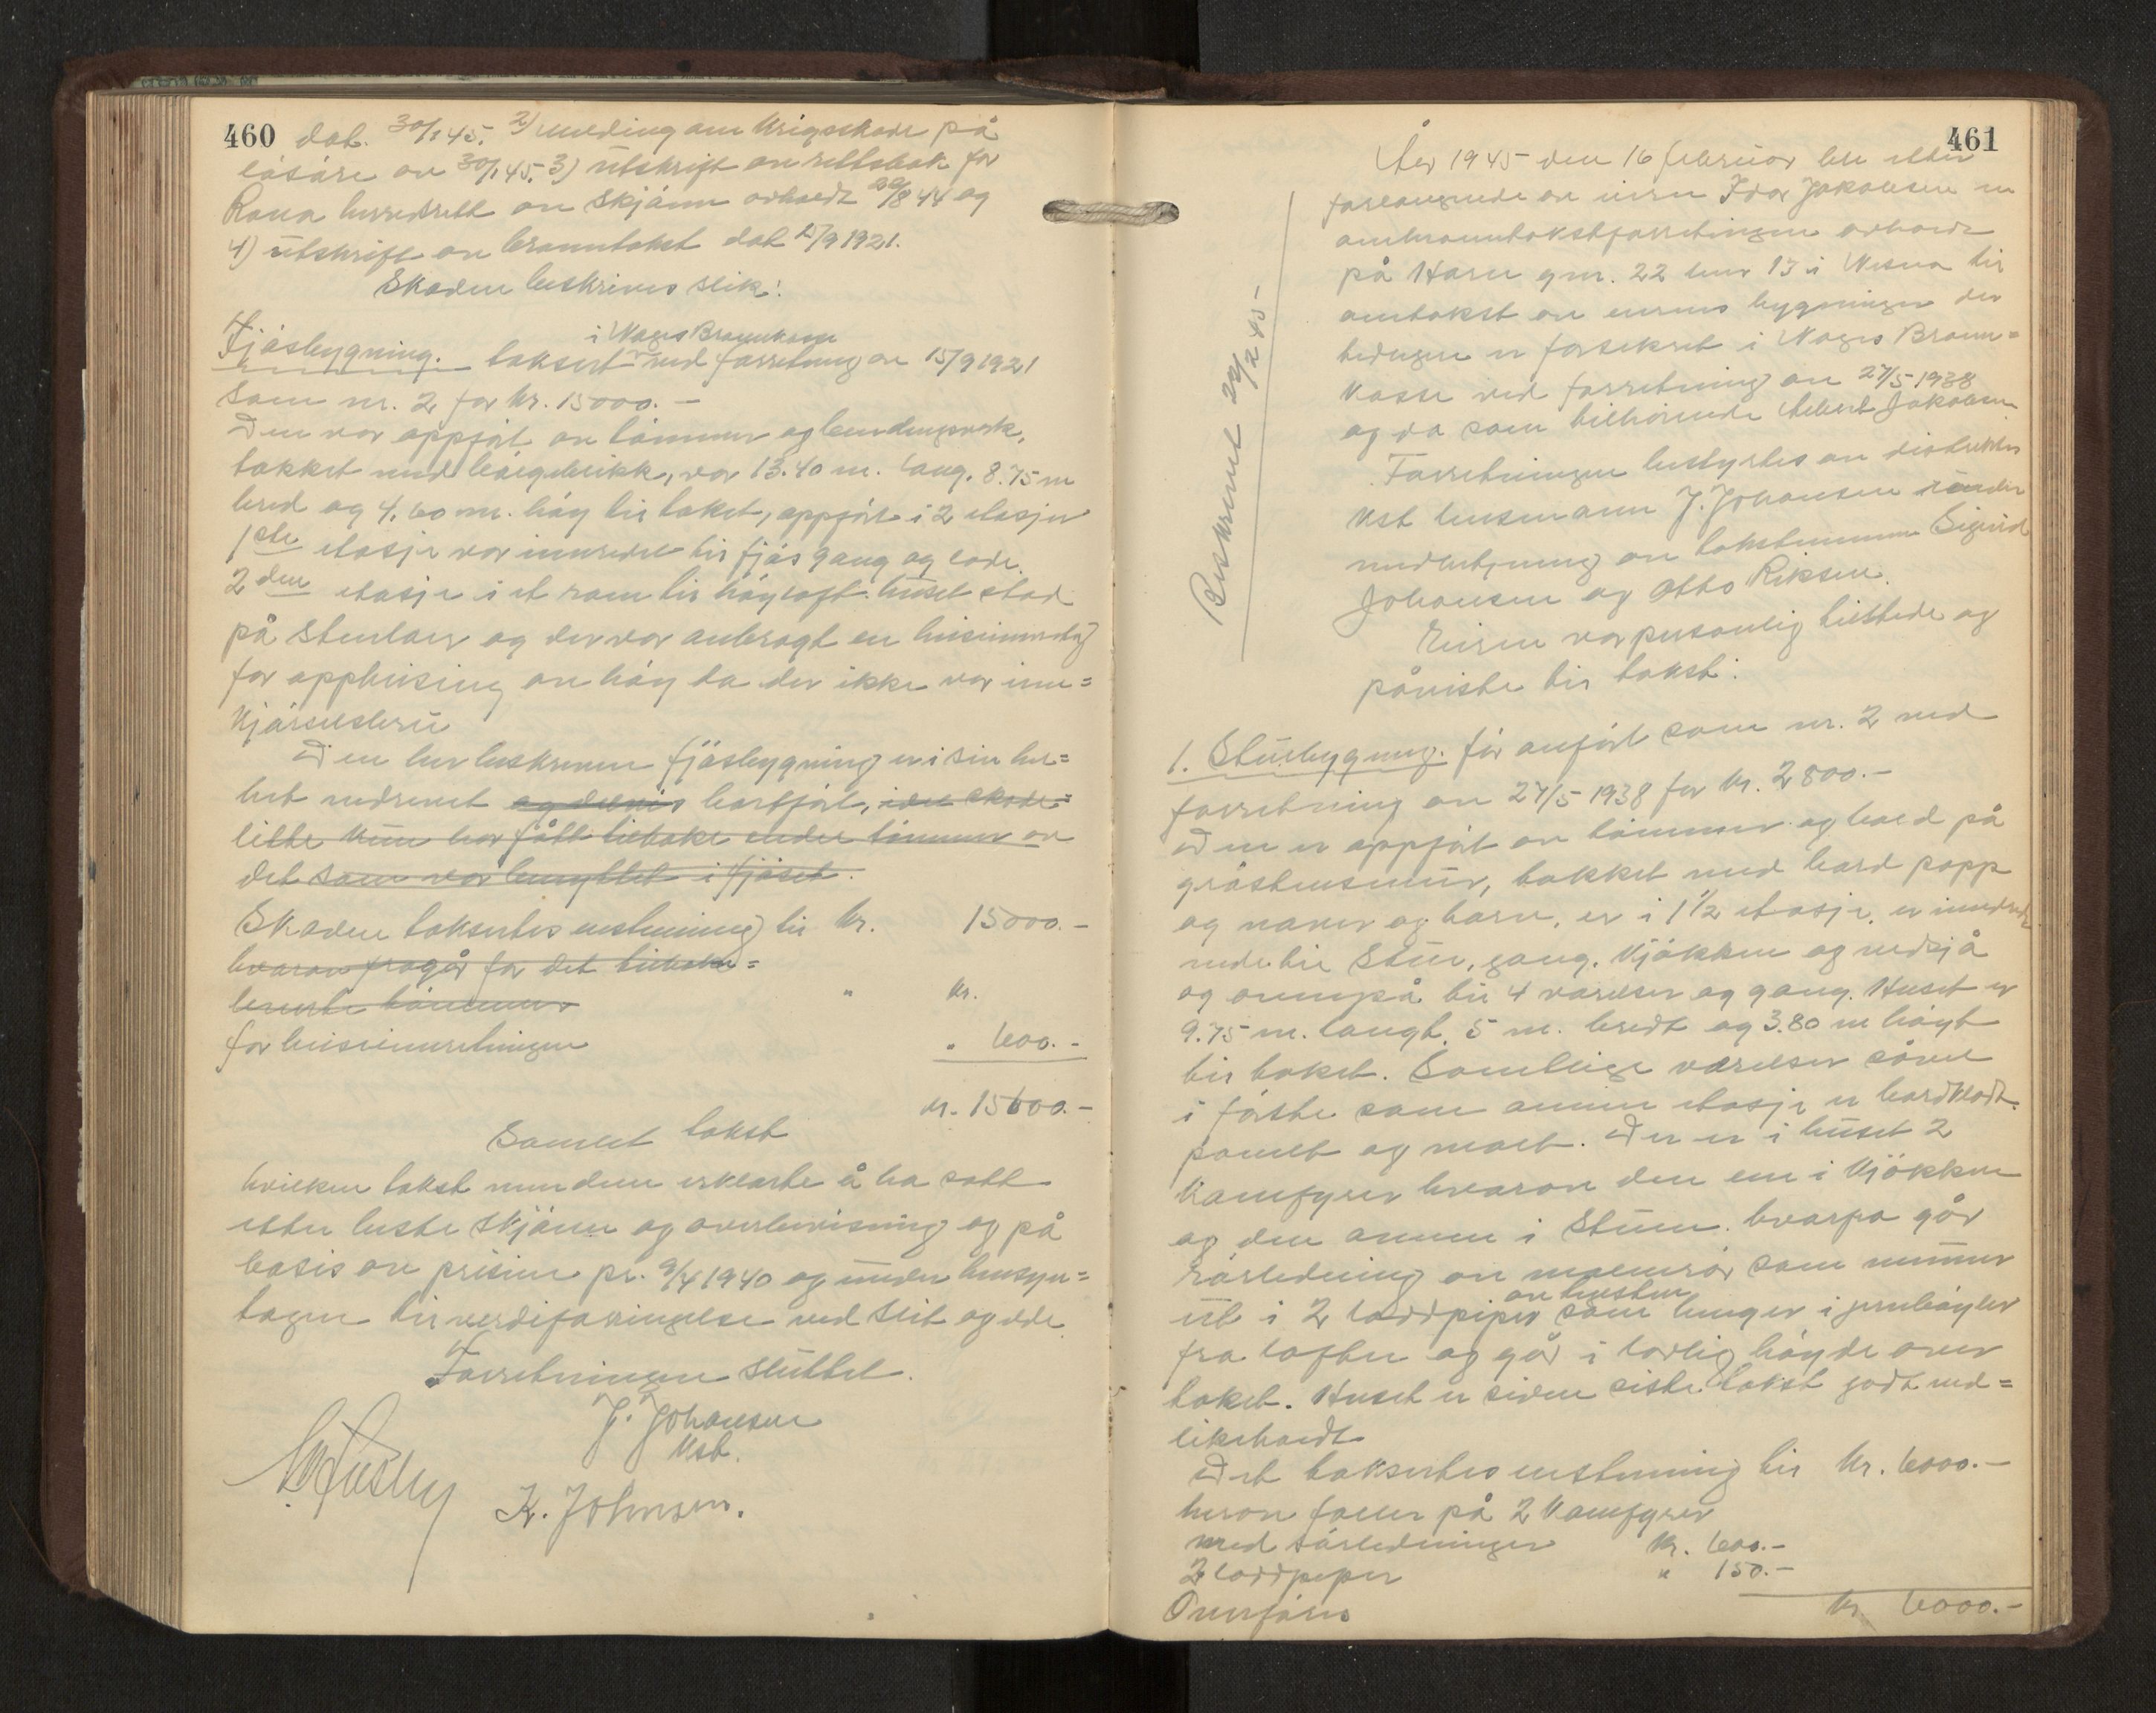 460
dat. 30/1 45. 2) melding om krigsskade på
løsøre av 30/1 45. 3) utskrift av rettsbok for
Rana herredsrett av skjønn avholdt 22/8 44 og
4) utskrift av branntakst dat 15/9 1921.
Skaden beskrives slik:
i Norges Brannkasse
Fjøsbygning. taksert ved forretning av 15/9 1921
som nr. 2 for kr. 15000.-
Den var oppført av tømmer og bendingsverk,
takket med bølgeblikk, var 13.40 m. lang. 8.75 m
bred og 4.60 m. høy til taket, oppført i 2 etasjer
1ste etasje var innredet til fjøs gang og lade.
2den etasje i et rom til høyloft. Huset stod
på stenlaer og der var anbragt en heisinnretng
for oppheising av høy da der ikke var inn=
kjørselsbru
Den her beskrevne fjøsbygning er i sin hel=
het nedrevet og delvis bortført, idet skade=
lidte kun har fått tilbake endel tømmer av
det som var benyttet i fjøset.
Skaden taksertes enstemmig til kr. 15000.-
hvorav fragår for det tilbake=
leverte tømmer " kr.
for heisinnretningen " 600.-
kr. 15600.-
Samlet takst
hvilken takst mendene erklærte å ha satt
etter beste skjønn og overbevisning og på
basis av prisene pr. 9/4 1940 og under hensyn=
tagen til verdiforringelse ved slit og elde.
Forretningen sluttet.
J. Johansen
kst.
K. Johnsen.
461
Beskrevet 22/2 45-
År 1945 den 16 februar ble etter
forlangende av eieren Ivar Jakobsen en
ombranntakstforretningen avholdt
på Haru gnr. 22 bnr 13 i Nesna til
omtakst av eierens bygninger der
tidligere er forsikret i Norges Brann=
kasse ved forretning av 27/5 1938
og da som tilhørende Albert Jakobsen
Forretningen bestyrtes av distriktets
kst lensmann J. Johansen under
medbetjening av takstmennene Sigurd
Johansen og Otto Riksen.
Eieren var personlig tilstede og
påviste til takst:
1. Stuebygning. før anført som nr. 2 ved
forretning av 27/5 1938 for kr. 2800.-
Den er oppført av tømmer og bord på
gråstensmur, takket med bord papp
og never og torv, er i 1 1/2 etasje, er innredet
nede til stue, gang, kjøkken og vedsjå
og ovenpå til 4 værelser og gang. Huset er
9.75 m. langt. 5 m. bredt og 3.80 m høyt
til taket. Samtlige værelser såvel
i første som annen etasje er bordkledt
panelt og malt. Der er i huset 2
kamfyrer hvorav den ene i kjøkken
og den annen i stuen. hvorfra går
rørledning av malmrør som munner
av tegelsten
ut i 2 loddpiper som henger i jernbøyler
fra loften og går i lovlig høyde over
taket. Huset er siden siste takst godt ved=
likeholdt
Det taksertes enstemmig til kr. 6000.-
herav faller på 2 kamfyrer
med rørledninger kr. 600.-
2 loddpiper " 150.-
Overføres kr 6000.-